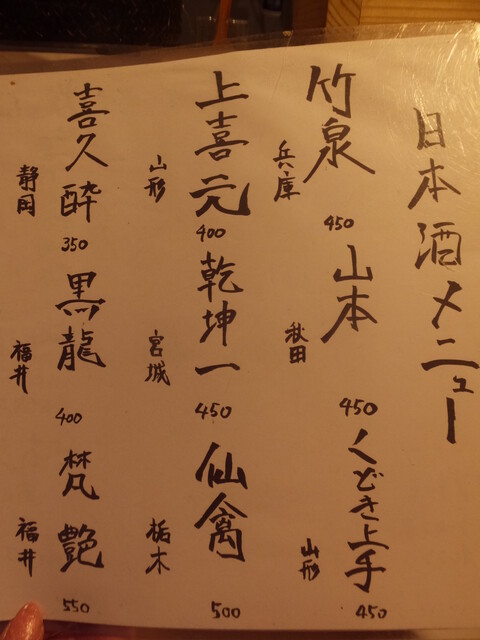 日本酒メニュー
竹泉
兵庫
450
山本
秋田
450
くどき上手
山形
450
上喜元
山形
400
乾坤一
宮城
450
仙禽
栃木
500
喜久酔
静岡
350
黒龍
福井
400
梵 艶
福井
550